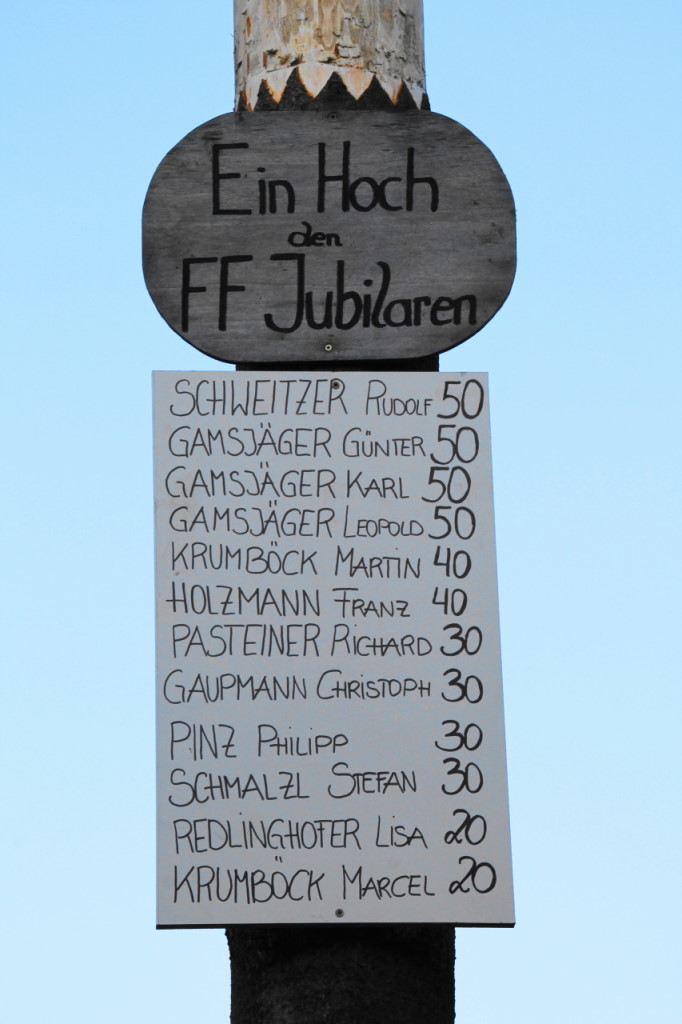 Ein Hoch
den
FF Jubilaren
SCHWEITZER RUDOLF 50
GAMSJÄGER GÜNTER 50
GAMSJÄGER KARL 50
GAMSJÄGER LEOPOLD 50
KRUMBÖCK MARTIN 40
HOLZMANN FRANZ 40
PASTEINER RICHARD 30
GAUPMANN CHRISTOPH 30
PINZ PHILIPP 30
SCHMALZL STEFAN 30
REDLINGHOFER LISA 20
KRUMBÖCK MARCEL 20